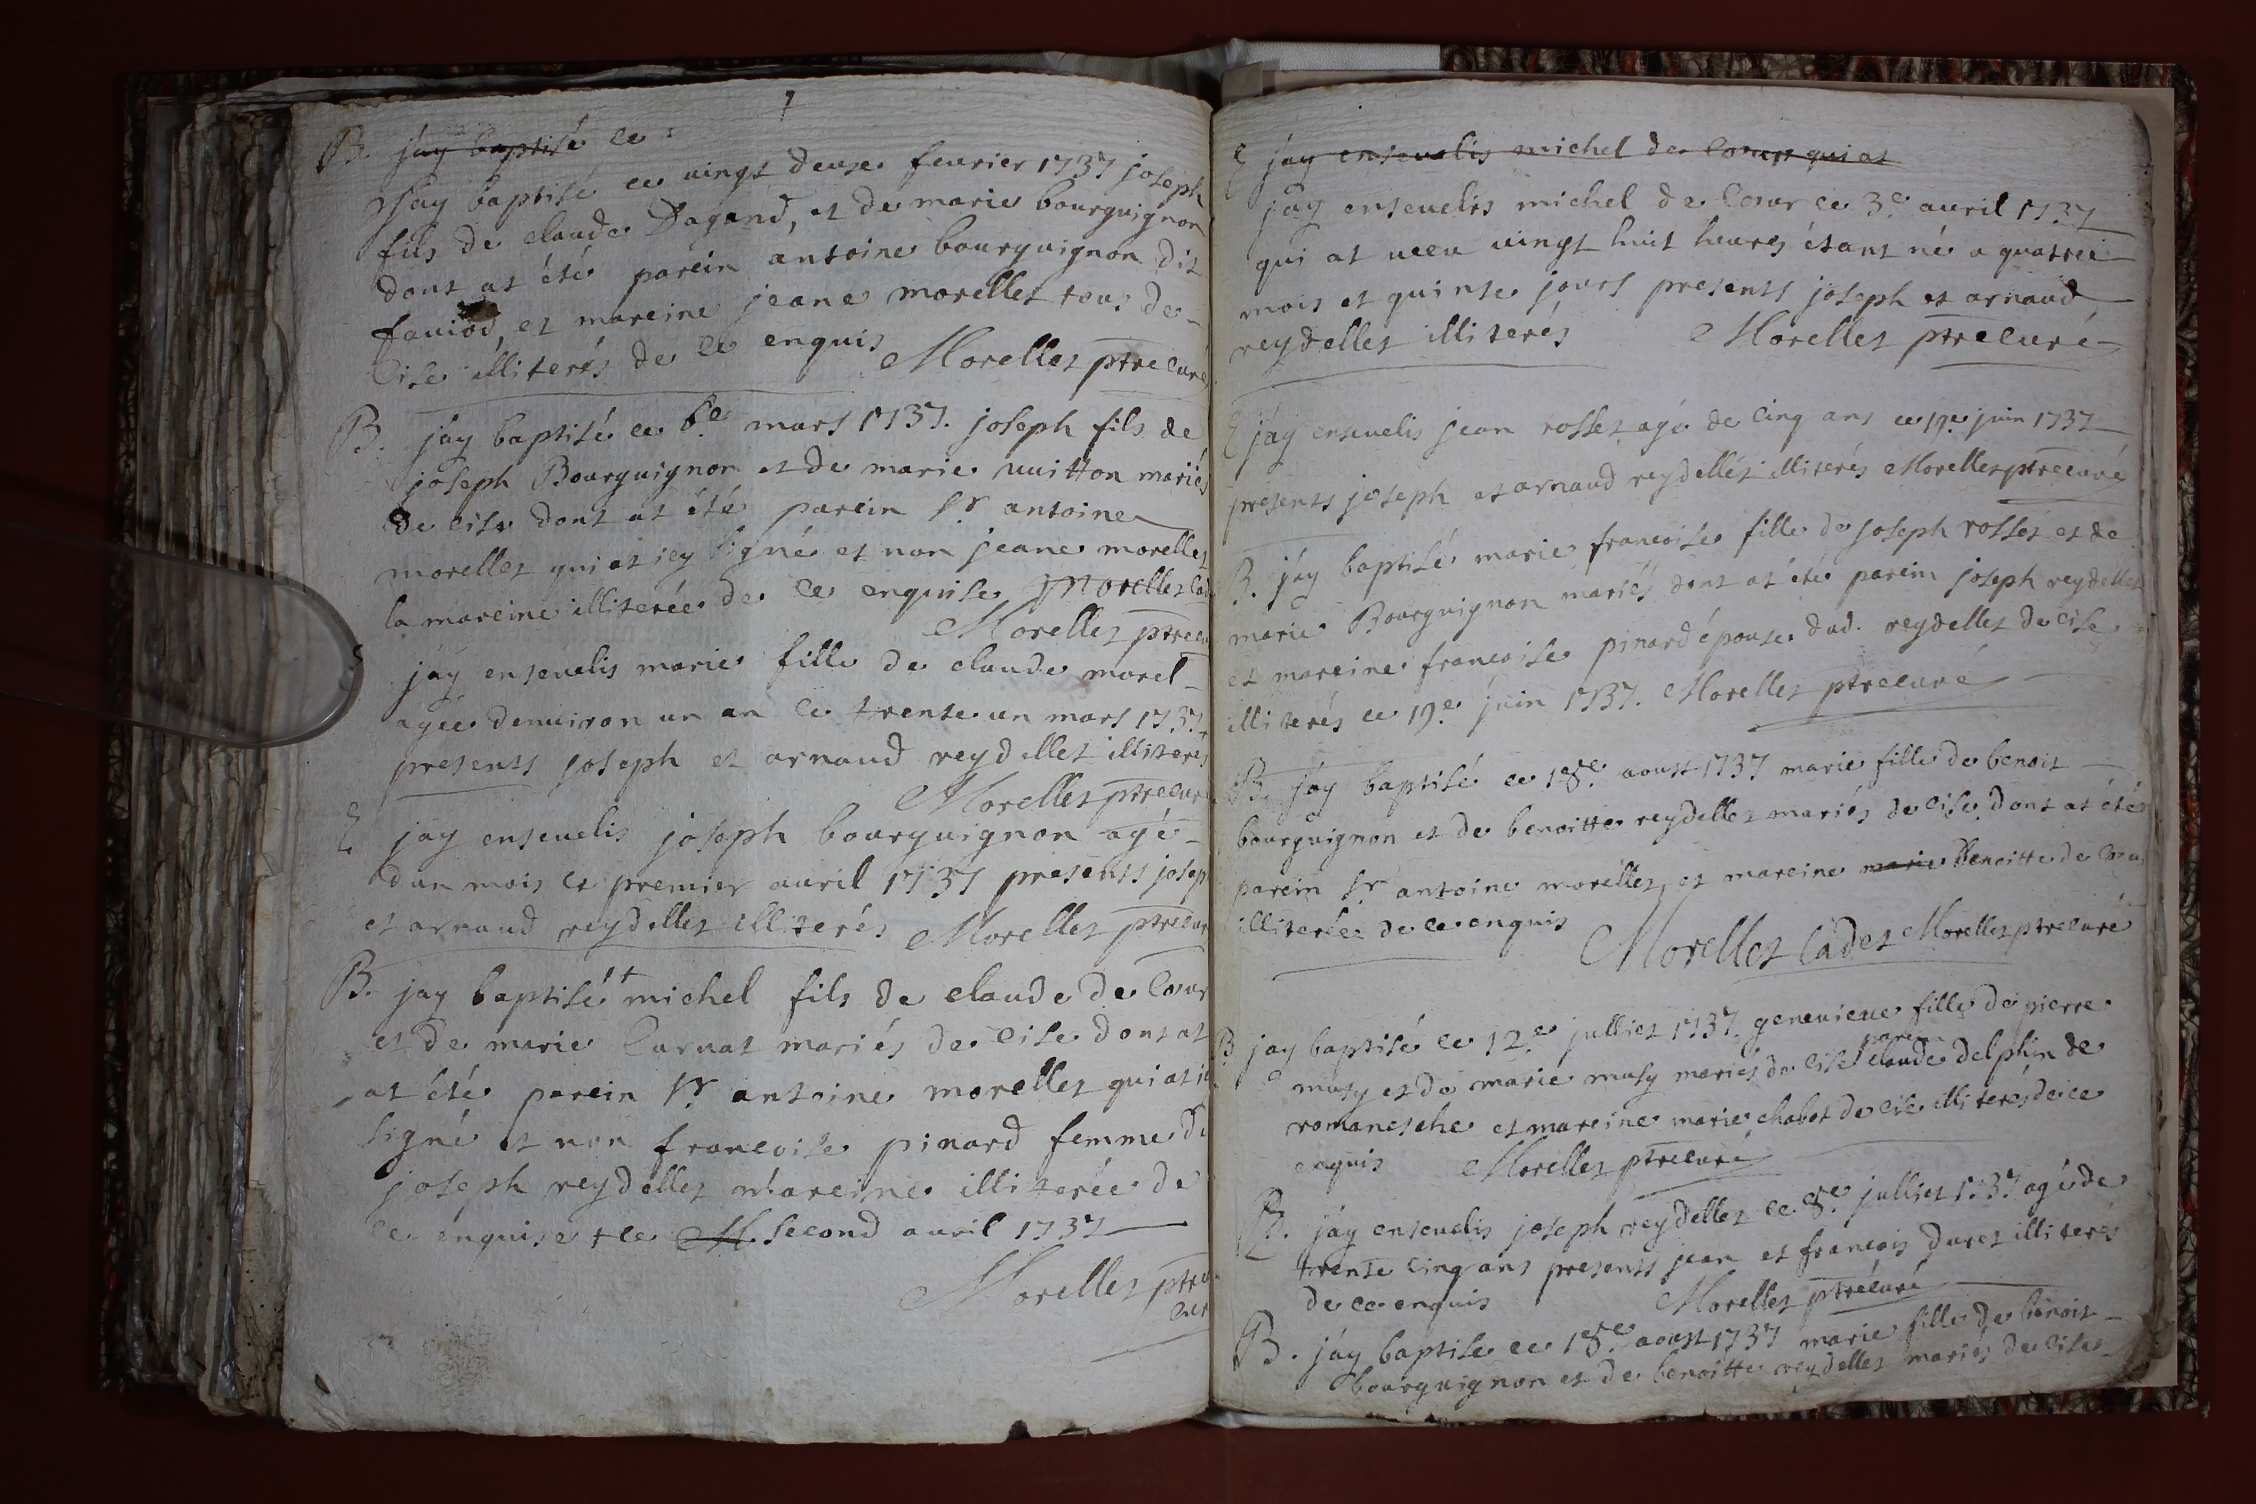 B. jay baptisé ce
Jay baptisé ce uingt deuse feurier 1737 joseph
fils de claude Dagand, et de marie bourguignon
dont at été parein antoine bourguignon dit
fauiod, et mareine jeane morellet tous de
Cise illiterés de ce enquis Morellet ptre curé
B. jáy baptisé ce 6e mars 1737. joseph fils de
joseph Bourguignon et de marie uuitton mariés
de cise dont at été parein Sr antoine
morellet qui at icy signé et non jeane morellet
la mareine illiterée de ce enquise Morellet
Morellet ptre
jáy enseuelis marie fille de claude morel
agée denuiron un an ce trente un mars 1737.
presents joseph et arnaud reydellet illiterés
Morellet ptre cur
E jay enseuelis joseph bourguignon agé
dun mois ce premier auril 1737 presents josep
et arnaud reydellet illiterés Morellet ptre cur
B. jay baptisé + michel fils de claude de Cour
et de marie Curnat mariés de Cise dont at
at été parein Sr antoine morellet qui at
signé et non francoise pinard femme
joseph reydellet mareine illiterée de
ce enquise + ce M. second auril 1737
Morellet ptre
cur
E jay enseuelis michel de Cour qui at
jay enseuelis michel de Cour ce 3e auril 1737
qui at uecu uingt huit heures étant né a quatre
mois et quinse jours presents joseph et arnaud
reydellet illiterés Morellet ptre curé
E jáy enseuelis jean rosset agé de cinq ans ce 19e juin 1737
presents joseph et arnaud reydellet illiterés Morellet ptre curé
B. jáy baptisé marie francoise fille de joseph rosset et de
marie Bourguignon mariés dont at été parein joseph reydellet
et mareine francoise pinard épouse dud. reydellet de cise
illiterés ce 19e juin 1737. Morellet ptre curé
B. jáy baptisé ce 18e aoust 1737 marie fille de benoit
bourguignon et de benoitte reydellet mariés de cise dont at été
parein Sr antoine morellet, et mareine marie Benoitte de Cour
illiterée de ce enquis
Morellet Cadet Morellet ptre curé
B jay baptisé ce 12e julliet 1737 genevieue fille de pierre
musy et de marie musy mariés de cise parein claude delphin de
romanesche et mareine marie chabot de cise illiterés de ce
enquis Morellet ptre curé
jáy enseuelis joseph reydellet ce 8e julliet 1737 agé de
trente cinq ans presents jean et francois duret illiterés
de ce enquis Morellet ptre curé
B. jáy baptise ce 18e aoust 1737 marie fille de benoit
bourguignon et de benoitte reydellet mariés de cise